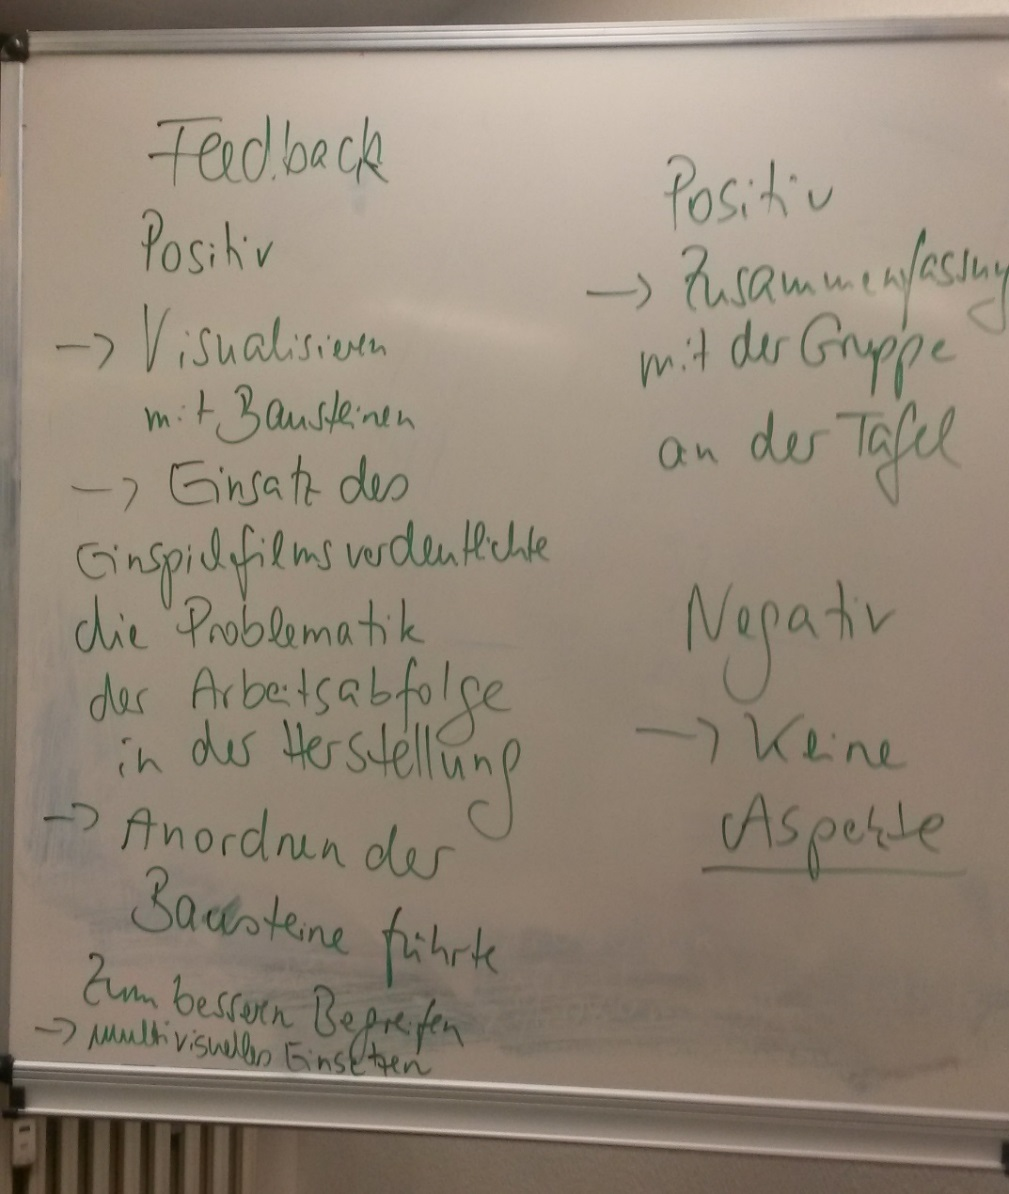 Feedback
Positiv
-> Visualisieren
mit Bausteinen
-> Einsatz des
Einspielfilms verdeutlichte
die Problematik
der Arbeitsabfolge
in der Herstellung
-> Anordnen der
Bausteine führte
Zum bessern Begreifen
-> multivisuelles Einsetzen
Positiv
-> Zusammenfassung
mit der Gruppe
an der Tafel
Negativ
-> Keine
Aspekte